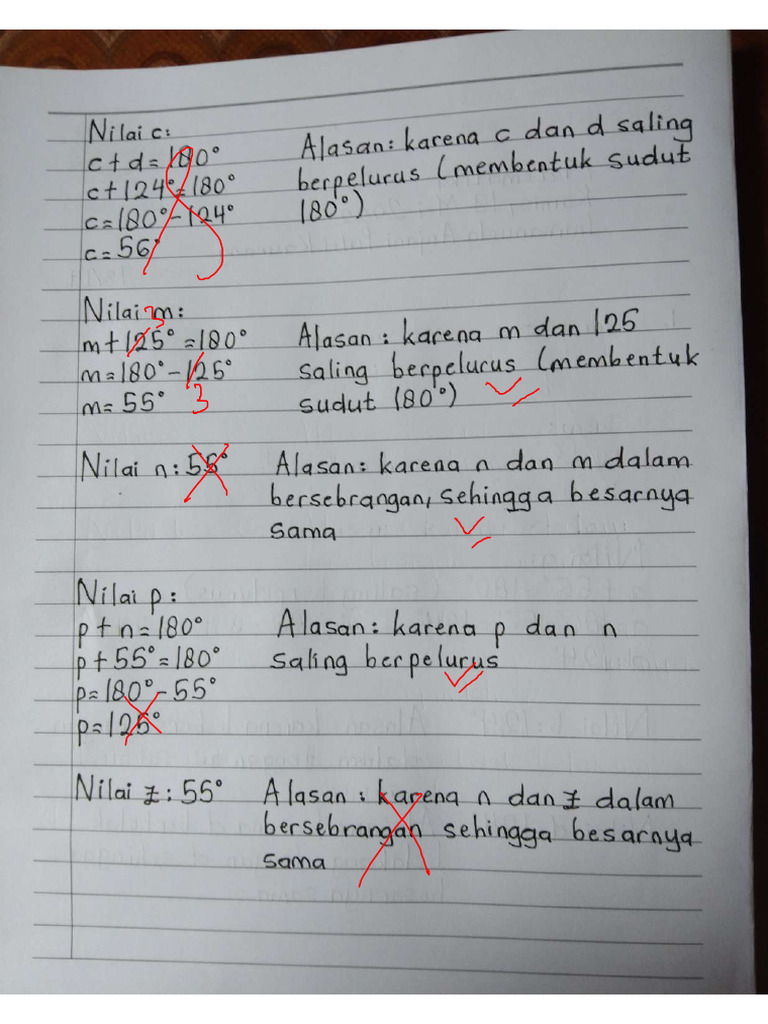 Nilai c:
c + d = 180°
c + 124° = 180°
c = 180° - 124°
c = 56°
Alasan : karena c dan d saling
berpelurus (membentuk sudut
180°)
Nilai m:
m + 125° = 180°
m = 180° - 125°
m = 55°
3
3
Alasan : karena m dan 125
saling berpelurus (membentuk
sudut 180°)
Nilai n : 55°
Alasan : karena n dan m dalam
bersebrangan, sehingga besarnya
sama
Nilai p :
p + n = 180°
p + 55° = 180°
p = 180° - 55°
p = 125°
Alasan : karena p dan n
saling berpelurus
Nilai z : 55°
Alasan : karena n dan z dalam
bersebrangan sehingga besarnya
sama